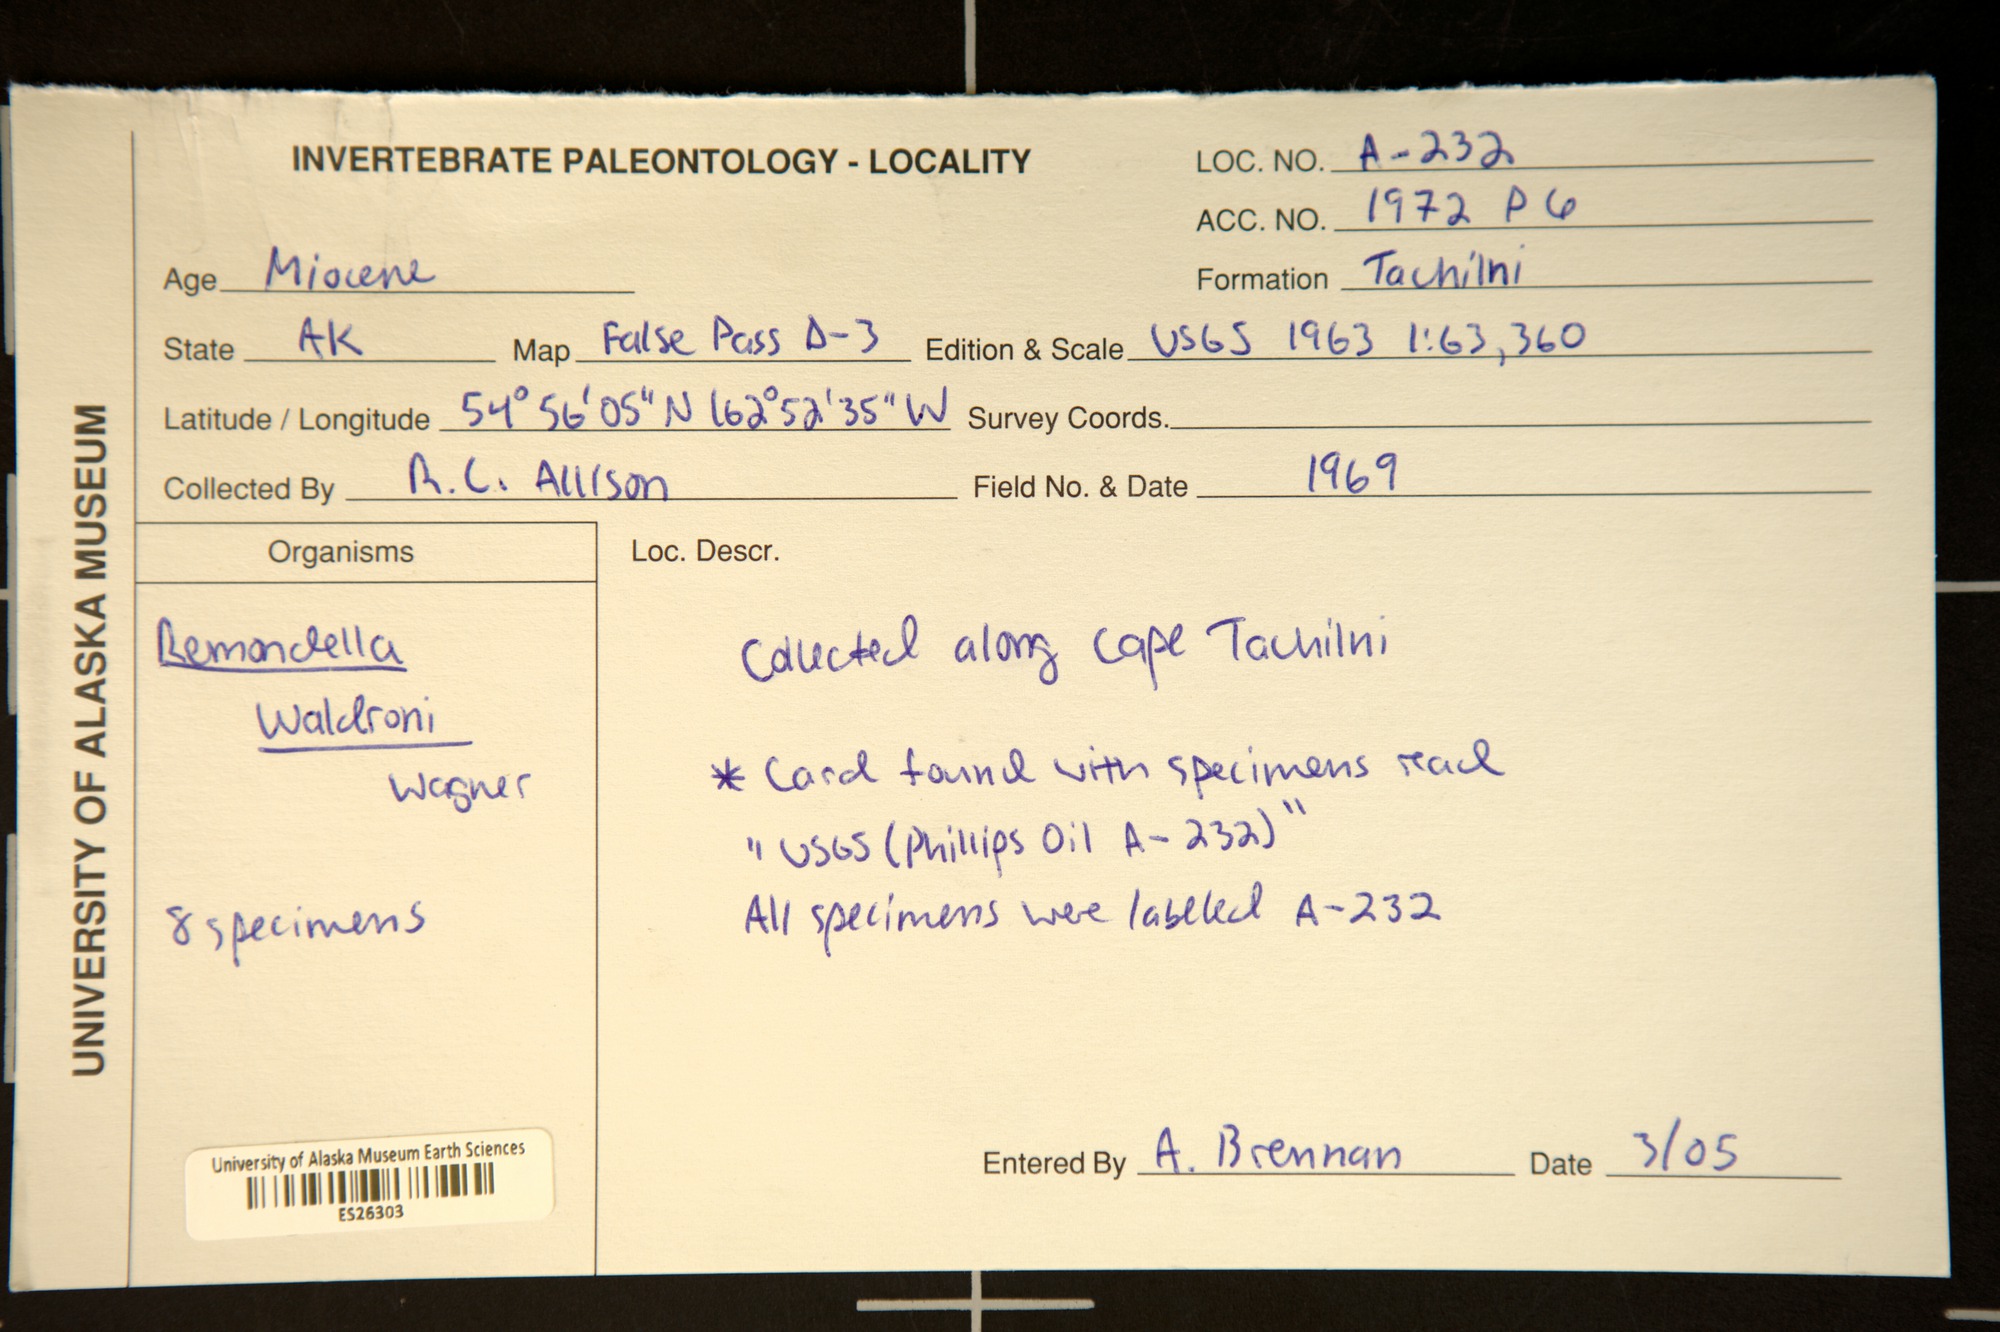 UNIVERSITY OF ALASKA MUSEUM
INVERTEBRATE PALEONTOLOGY - LOCALITY
LOC. NO. A-232
ACC. NO. 1972 P 6
Age Miocene
Formation Tachilni
State AK Map False Pass D-3 Edition & Scale USGS 1963 1:63,360
Latitude / Longitude 54° 56' 05" N 162° 52' 35" W Survey Coords.
Collected By R.C. Allison Field No. & Date 1969
Organisms
Remondella
Waldroni
Wagner
8 specimens
Loc. Descr.
Collected along Cape Tachilni
* Card found with specimens read
"USGS (Phillips Oil A-232)"
All specimens were labeled A-232
Entered By A. Brennan Date 3/05
University of Alaska Museum Earth Sciences
ES26303